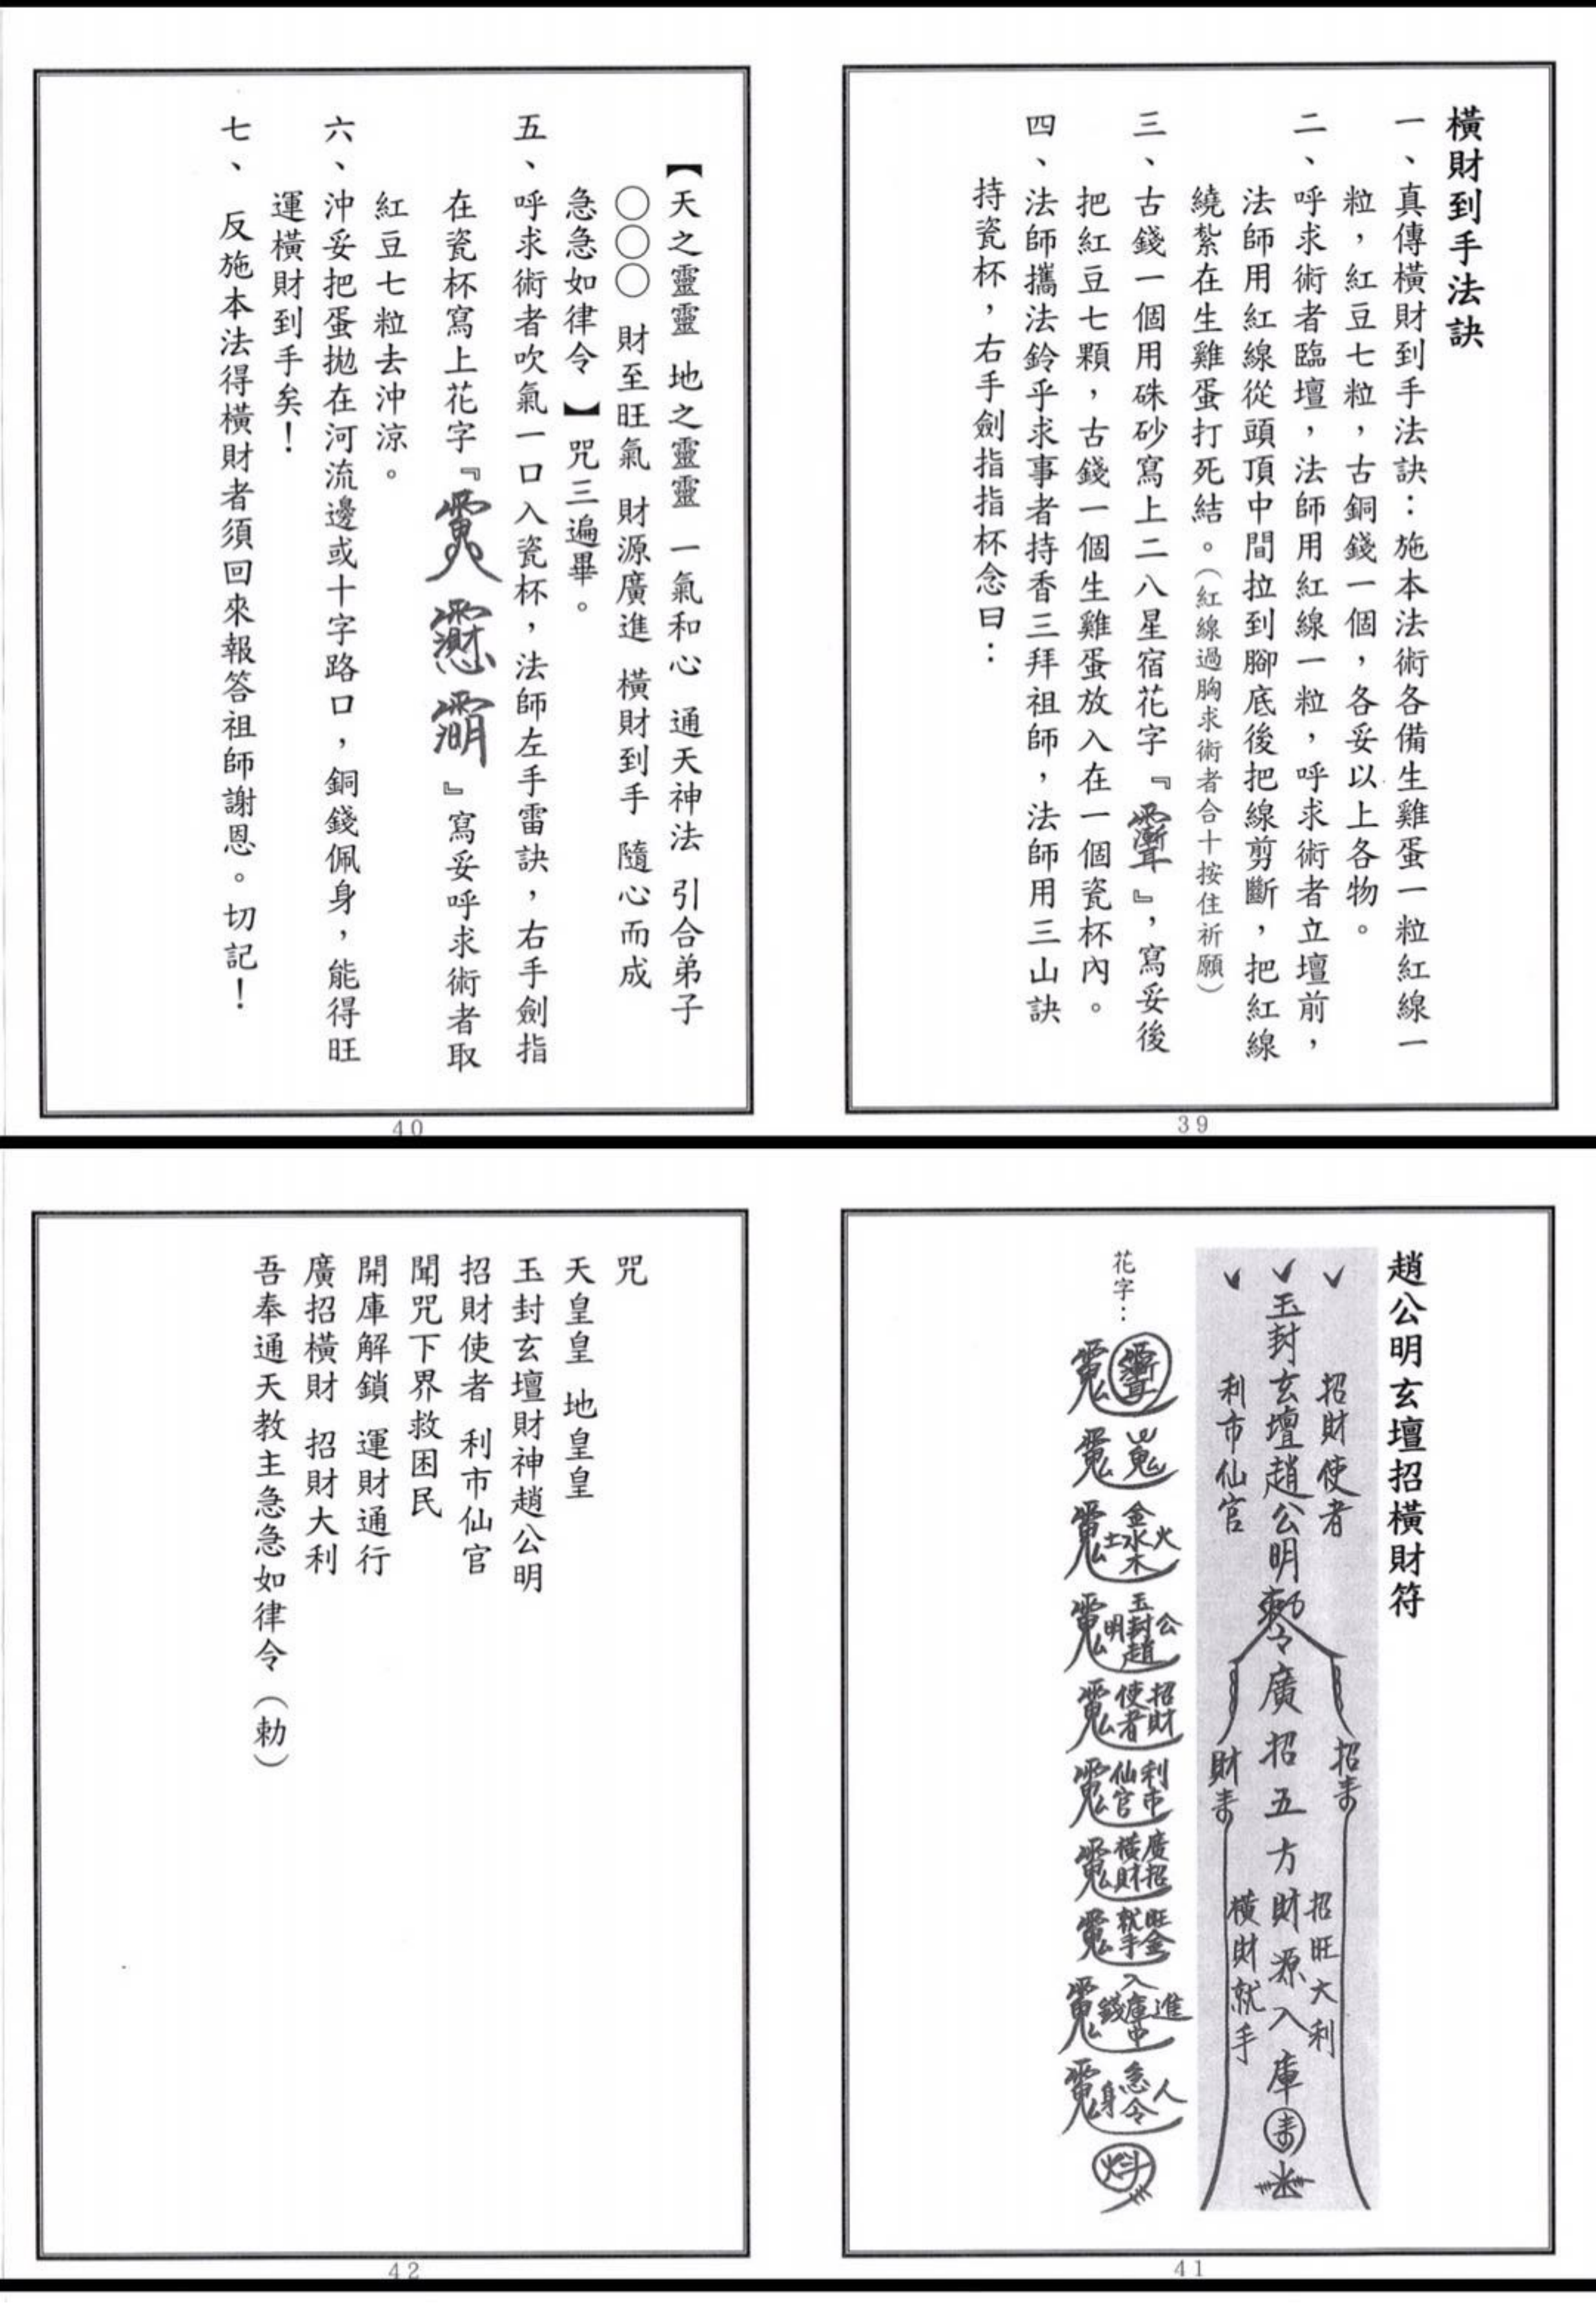 橫財到手法訣
一、真傳橫財到手法訣：施本法術各備生雞蛋一粒紅線一
粒，紅豆七粒，古銅錢一個，各妥以上各物。
二、呼求術者臨壇，法師用紅線一粒，呼求術者立壇前，
法師用紅線從頭頂中間拉到腳底後把線剪斷，把紅線
繞紮在生雞蛋打死結。（紅線過胸求術者合十按住祈願）
三、古錢一個用硃砂寫上二八星宿花字『』，寫妥後
把紅豆七顆，古錢一個生雞蛋放入在一個瓷杯內。
四、法師攜法鈴乎求事者持香三拜祖師，法師用三山訣
持瓷杯，右手劍指指杯念曰：
39
【天之靈靈 地之靈靈 一氣和心 通天神法 引合弟子
〇〇〇 財至旺氣 財源廣進 橫財到手 隨心而成
急急如律令】咒三遍畢。
五、呼求術者吹氣一口入瓷杯，法師左手雷訣，右手劍指
在瓷杯寫上花字『』寫妥呼求術者取
紅豆七粒去沖涼。
六、沖妥把蛋拋在河流邊或十字路口，銅錢佩身，能得旺
運橫財到手矣！
七、反施本法得橫財者須回來報答祖師謝恩。切記！
40
趙公明玄壇招橫財符
招財使者
玉封玄壇趙公明勅令廣招五方財源入庫
利市仙官
招
財
招旺大利
橫財就手
花字：
金水木火土
玉封趙公明
招財使者
利市仙官
廣招橫財
旺金就手
進入庫中錢
人急令身
41
咒
天皇皇 地皇皇
玉封玄壇財神趙公明
招財使者 利市仙官
聞咒下界救困民
開庫解鎖 運財通行
廣招橫財 招財大利
吾奉通天教主急急如律令（勅）
42